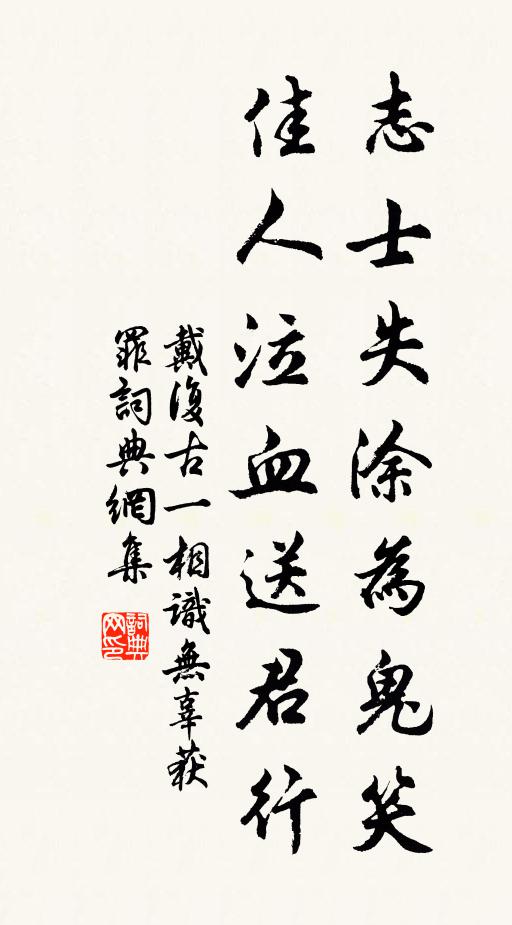 志士失涂為鬼笑
佳人泣血送君行
戴復古一相識無辜获
罪詞典網集
詞典网印